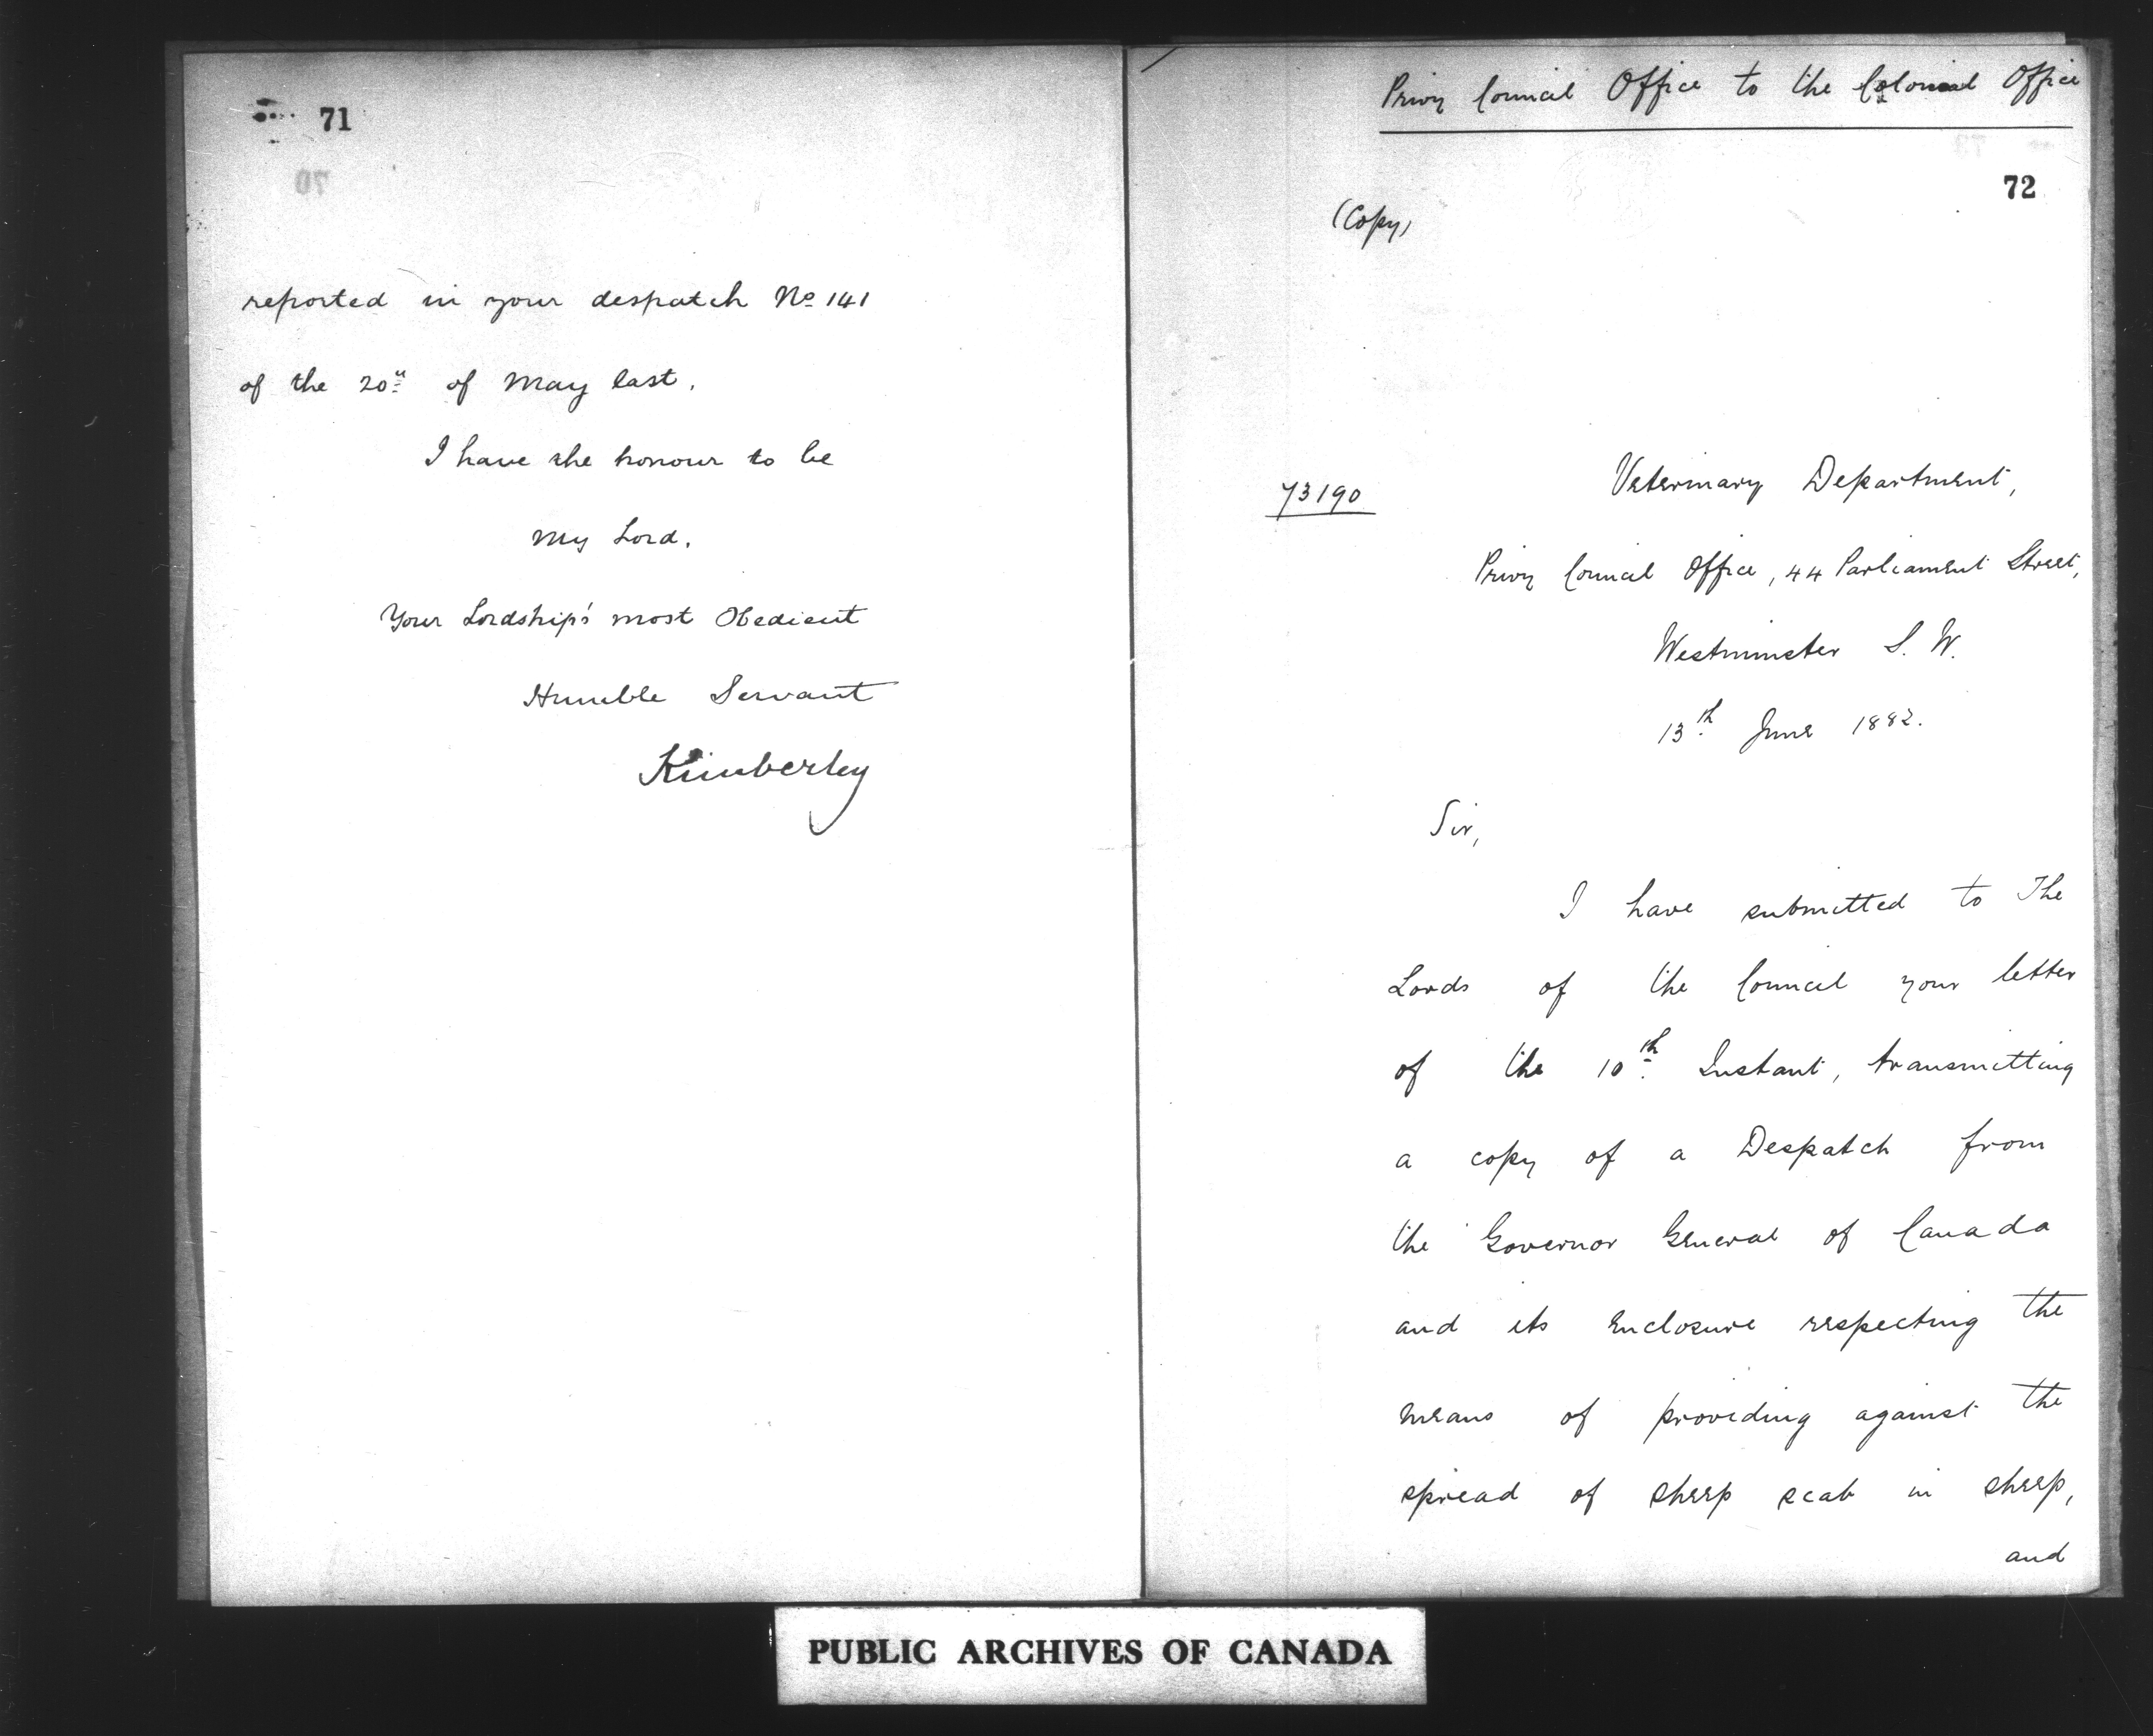 71
reported in your despatch No 141
of the 20th of May last.
I have the honour to be
My Lord,
Your Lordship's most Obedient
Humble Servant
Kimberley
Privy Council Office to the Colonial Office
72
(Copy)
73190
Veterinary Department,
Privy Council Office, 44 Parliament Street,
Westminster S. W.
13th June 1882.
Sir,
I have submitted to The
Lords of the Council your letter
of the 10th Instant, transmitting
a copy of a Despatch from
the Governor General of Canada
and its enclosure respecting the
means of providing against the
spread of sheep scab in sheep,
and
PUBLIC ARCHIVES OF CANADA